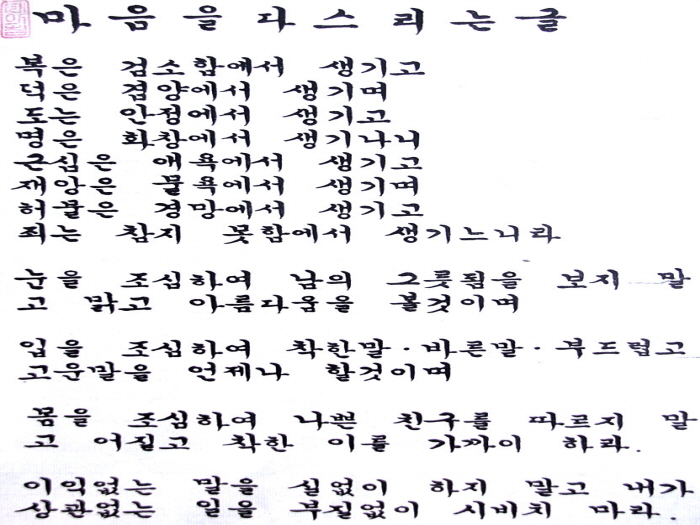 마음을다스리는글
복은 검소함에서 생기고
덕은 겸양에서 생기며
도는 안정에서 생기고
명은 화창에서 생기나니
근심은 애욕에서 생기고
재앙은 물욕에서 생기며
허물은 경망에서 생기고
죄는 참지 못함에서 생기느니라
눈을 조심하여 남의 그릇됨을 보지 말
고 맑고 아름다움을 볼것이며
입을 조심하여 착한말·바른말·부드럽고
고운말을 언제나 할것이며
몸을 조심하여 나쁜 친구를 따르지 말
고 어질고 착한 이를 가까이 하라.
이익없는 말을 실없이 하지 말고 내가
상관없는 일을 부질없이 시비치 마라.